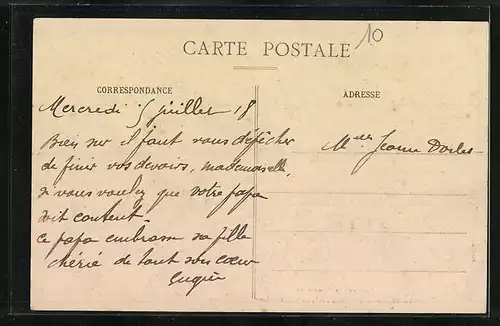 10
CARTE POSTALE
CORRESPONDANCE
ADRESSE
Mercredi 5 juillet 18
Bien sur il faut vous dépêcher
de finir vos devoirs, mademoiselle,
si vous voulez que votre papa
soit content.
Ce papa embrasse sa fille
chérie de tout son cœur
Melle Jeanne